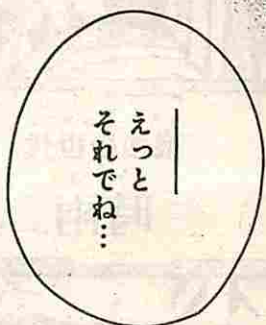 ――
えっと
それでね…